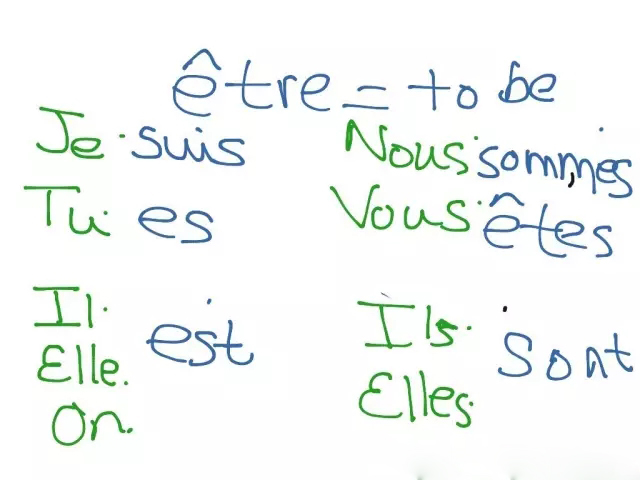 être = to be
Je suis
Tu es
Il
Elle est
On
Nous sommes
Vous êtes
Ils
Elles sont